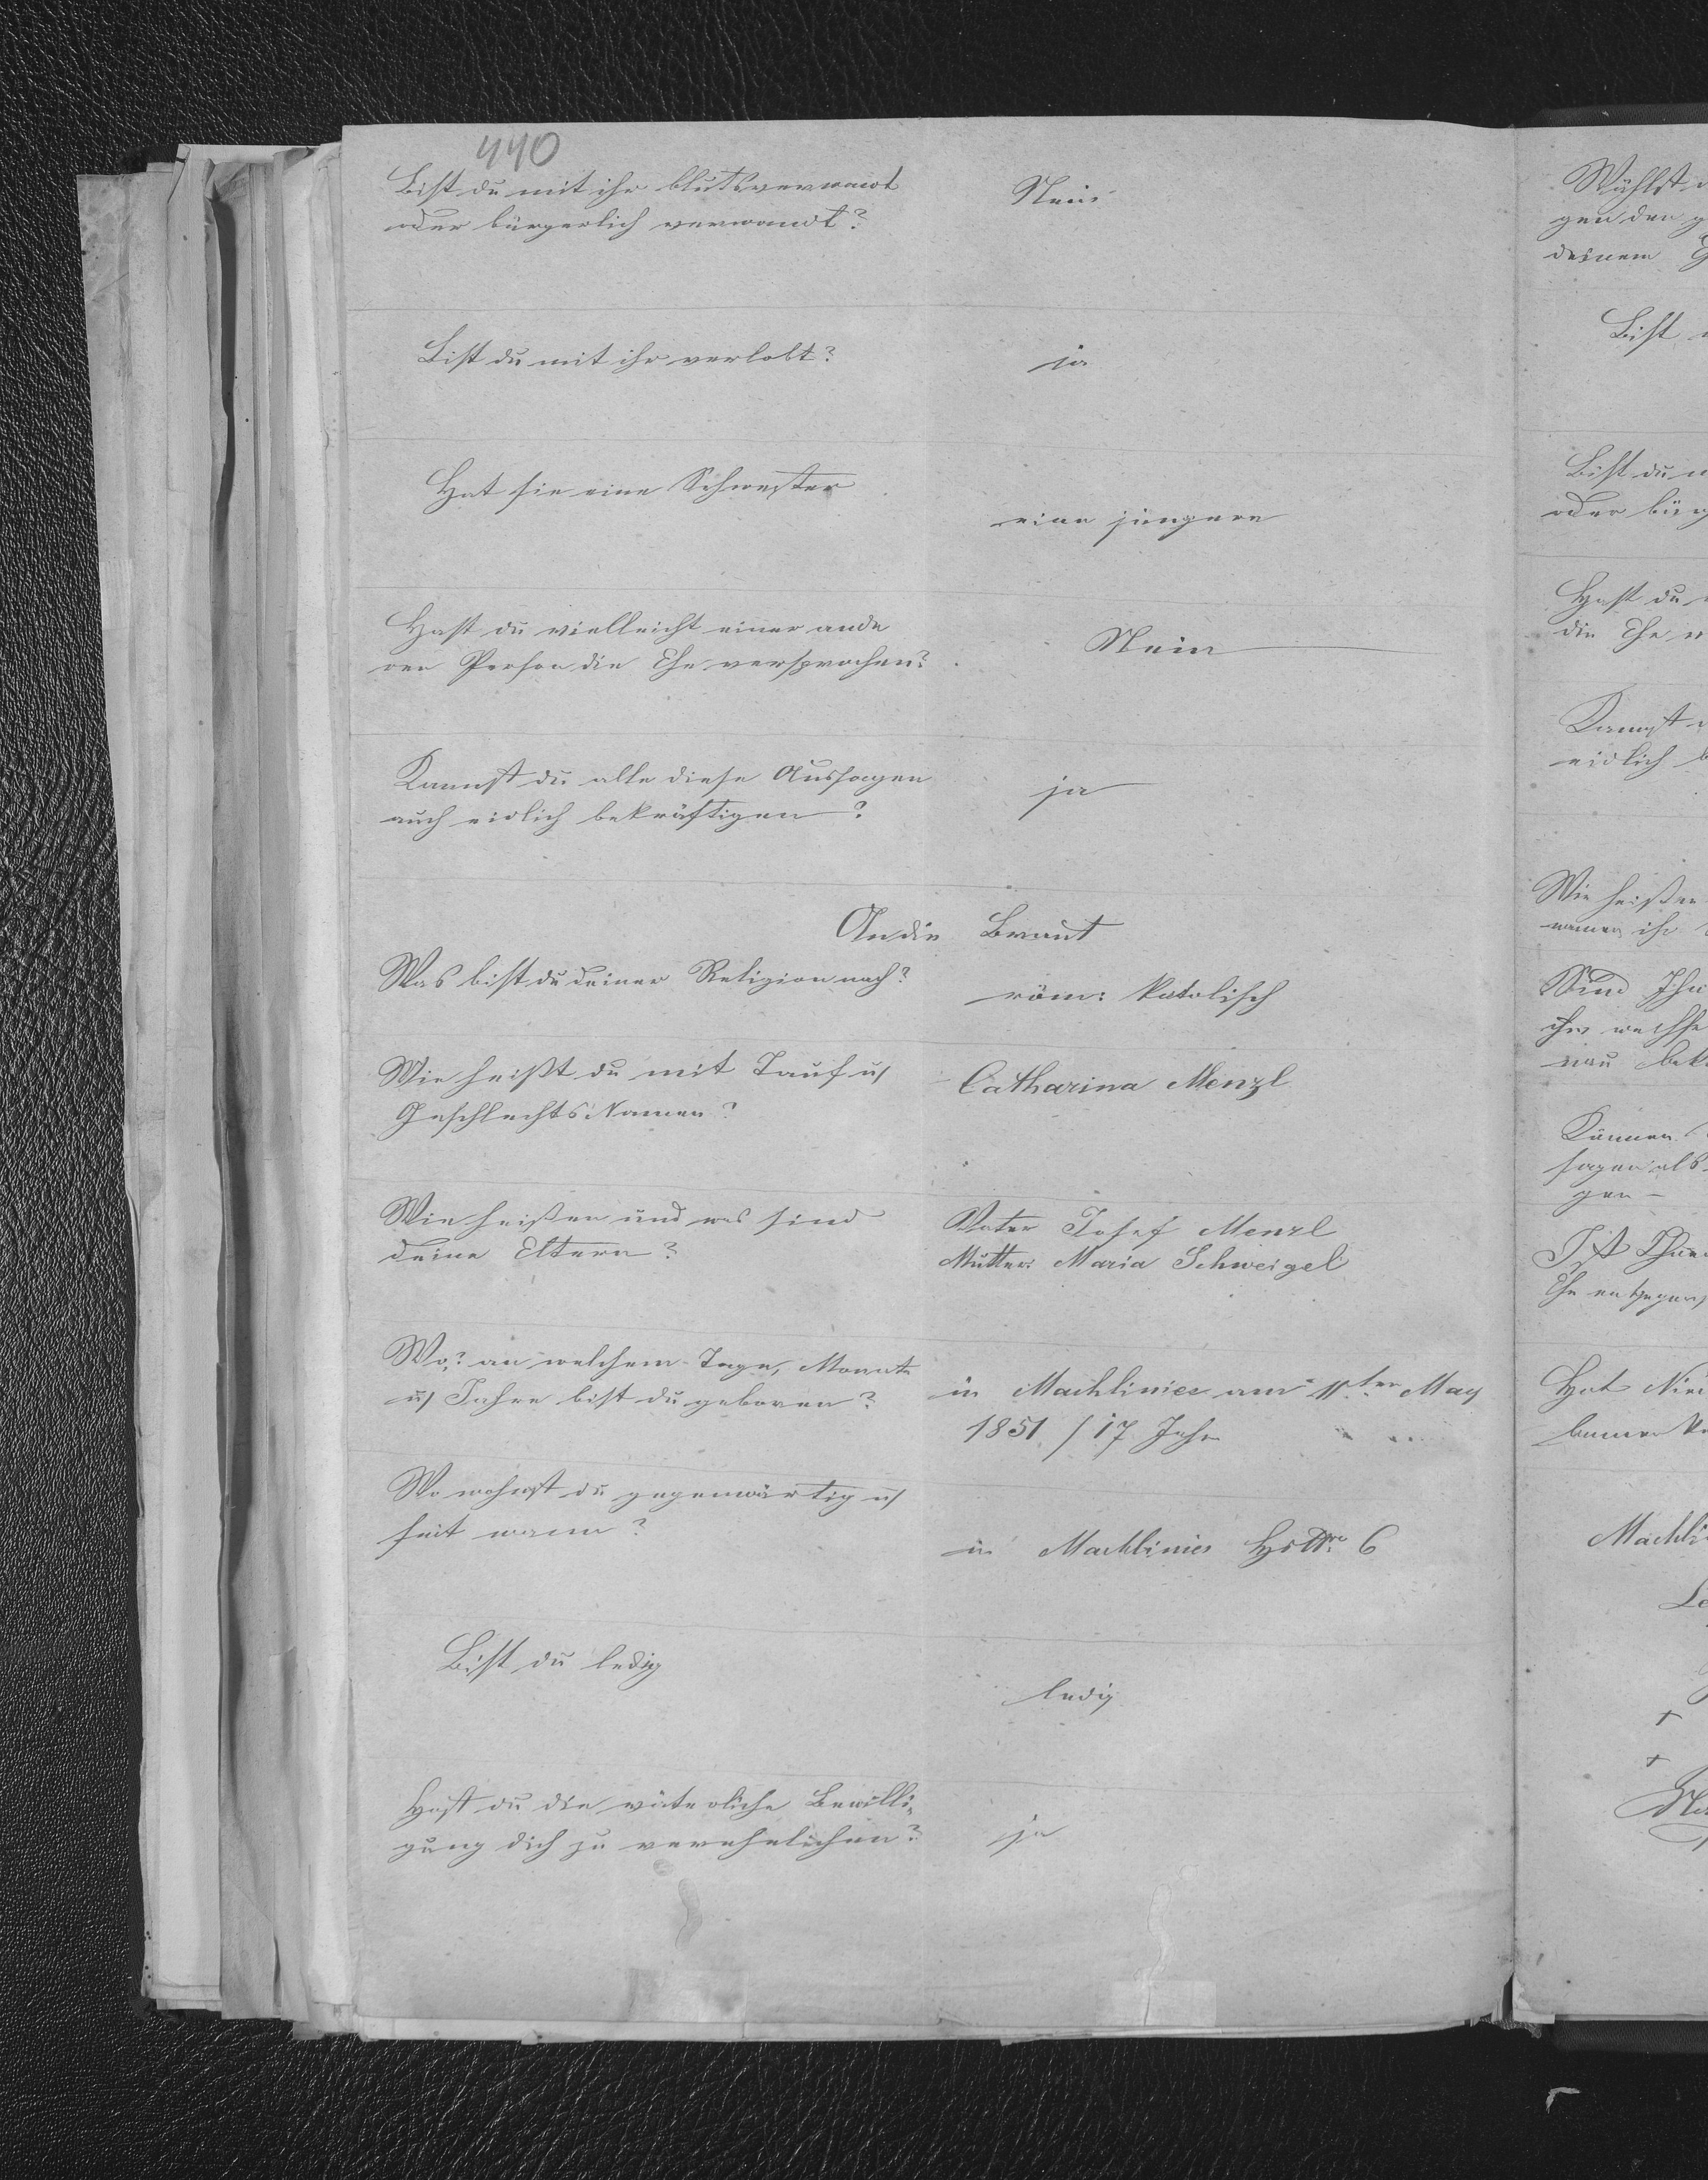 440
Bist du mit ihr blutsverwandt
oder bürgerlich verwandt?
Nein
Bist du mit ihr verlobt?
ja
Hat sie eine Schwester
eine jüngere
Hast du vielleicht einer ande
ren Person die Ehe versprochen?
Nein
Kannst du alle diese Aussagen
auch eidlich bekräftigen?
ja
An die Braut
Was bist du deiner Religion nach?
röm: katolisch
Wie heißt du mit Tauf u/
Geschlechts Namen?
Catharina Menzl
Wie heißen und was sind
deine Eltern?
Vater Josef Menzl
Mutter: Maria Schweigel
Wo,? an welchem Tage, Monate
u/ Jahre bist du geboren?
in Machliniec am 11ten May
1851 / 17 Jahr
Wo wohnst du gegenwärtig u/
seit wann?
in Machliniec 6
Bist du ledig
ledig
Hast du die väterliche Bewilli,
gung dich zu verehelichen?
ja
Wählst
gen den
deinem
Bist
Bist du
oder bürg
Hast du
die Ehe
Kannst
eidlich
Wie heißen
namen ihr
Sind
Können
sagen als
gen –
Ist
Ehe entgegen
Hat
Machli